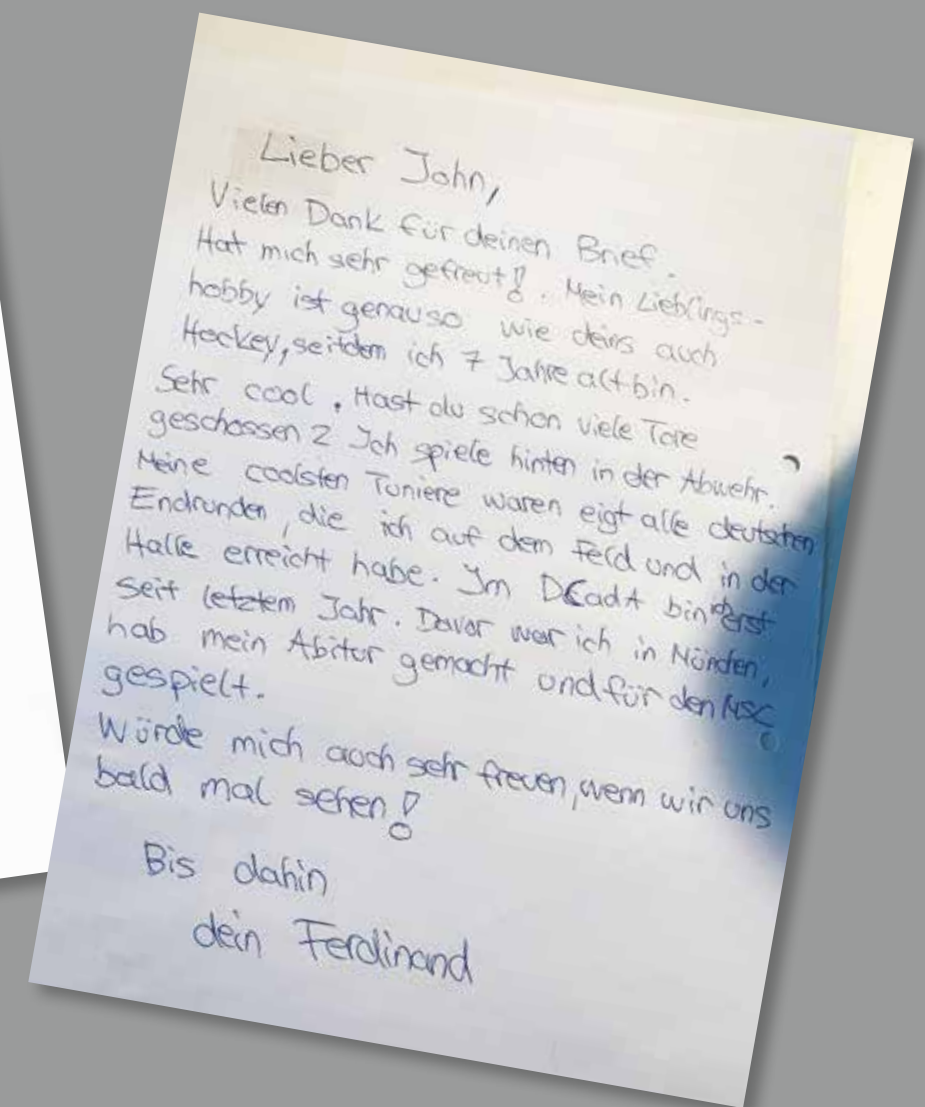 Lieber John,
Vielen Dank für deinen Brief.
Hat mich sehr gefreut!. Mein Lieblings-
hobby ist genauso wie deins auch
Hockey, seitdem ich 7 Jahre alt bin.
Sehr cool. Hast du schon viele Tore
geschossen? Ich spiele hinten in der Abwehr.
Meine coolsten Tuniere waren eigt alle deutschen
Endrunden, die ich auf dem Feld und in der
Halle erreicht habe. Im DCadA bin ich erst
seit letztem Jahr. Davor war ich in München,
hab mein Abitur gemacht und für den MSC
gespielt.
Würde mich auch sehr freuen, wenn wir uns
bald mal sehen!
Bis dahin
dein Ferdinand